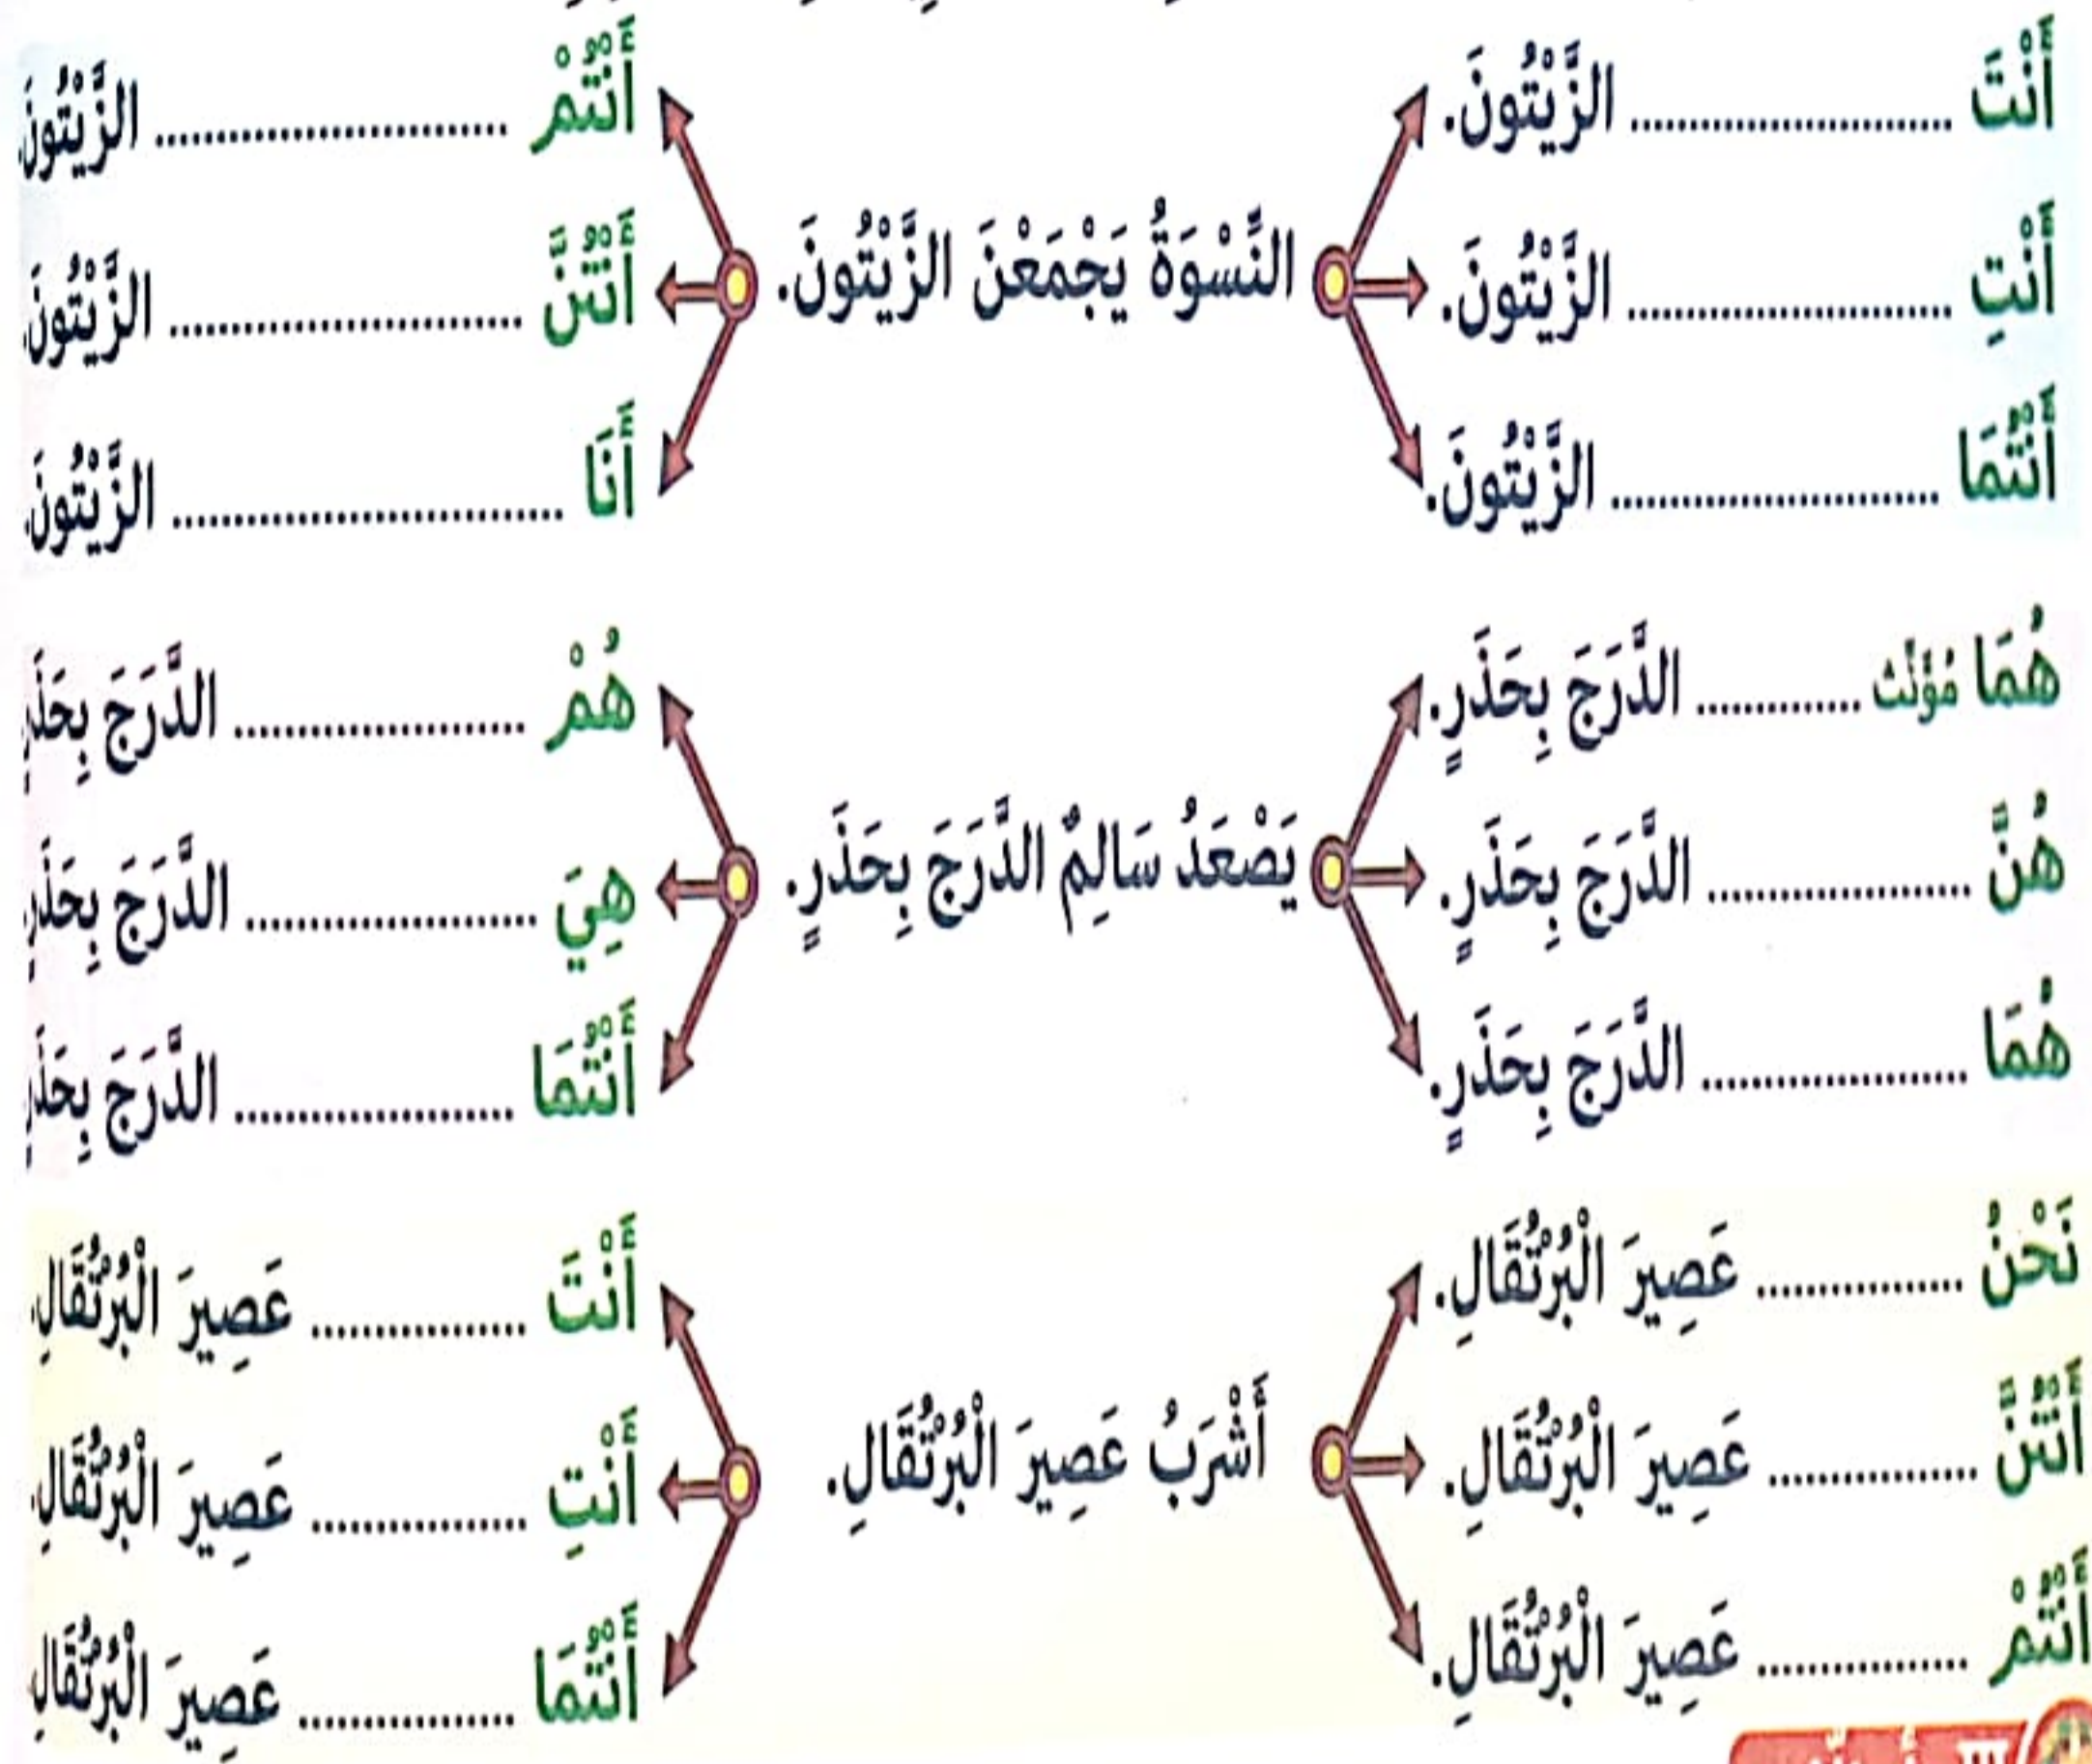 أَنْتَ .......................... الزَّيْتُونَ.
أَنْتِ .......................... الزَّيْتُونَ.
أَنْتُمَا .......................... الزَّيْتُونَ.
النِّسْوَةُ يَجْمَعْنَ الزَّيْتُونَ.
أَنْتُمْ .......................... الزَّيْتُونَ
أَنْتُنَّ .......................... الزَّيْتُونَ
أَنَا .......................... الزَّيْتُونَ
هُمَا مُؤَنَّث ............. الدَّرَجَ بِحَذَرٍ.
هُنَّ ..................... الدَّرَجَ بِحَذَرٍ.
هُمَا ..................... الدَّرَجَ بِحَذَرٍ.
يَصْعَدُ سَالِمٌ الدَّرَجَ بِحَذَرٍ.
هُمْ ..................... الدَّرَجَ بِحَذَرٍ
هِيَ ..................... الدَّرَجَ بِحَذَرٍ
أَنْتُمَا ..................... الدَّرَجَ بِحَذَرٍ
نَحْنُ ................ عَصِيرَ الْبُرْتُقَالِ.
أَنْتُنَّ ................ عَصِيرَ الْبُرْتُقَالِ.
أَنْتُمْ ................ عَصِيرَ الْبُرْتُقَالِ.
أَشْرَبُ عَصِيرَ الْبُرْتُقَالِ.
أَنْتَ ................ عَصِيرَ الْبُرْتُقَالِ.
أَنْتِ ................ عَصِيرَ الْبُرْتُقَالِ.
أَنْتُمَا ................ عَصِيرَ الْبُرْتُقَالِ